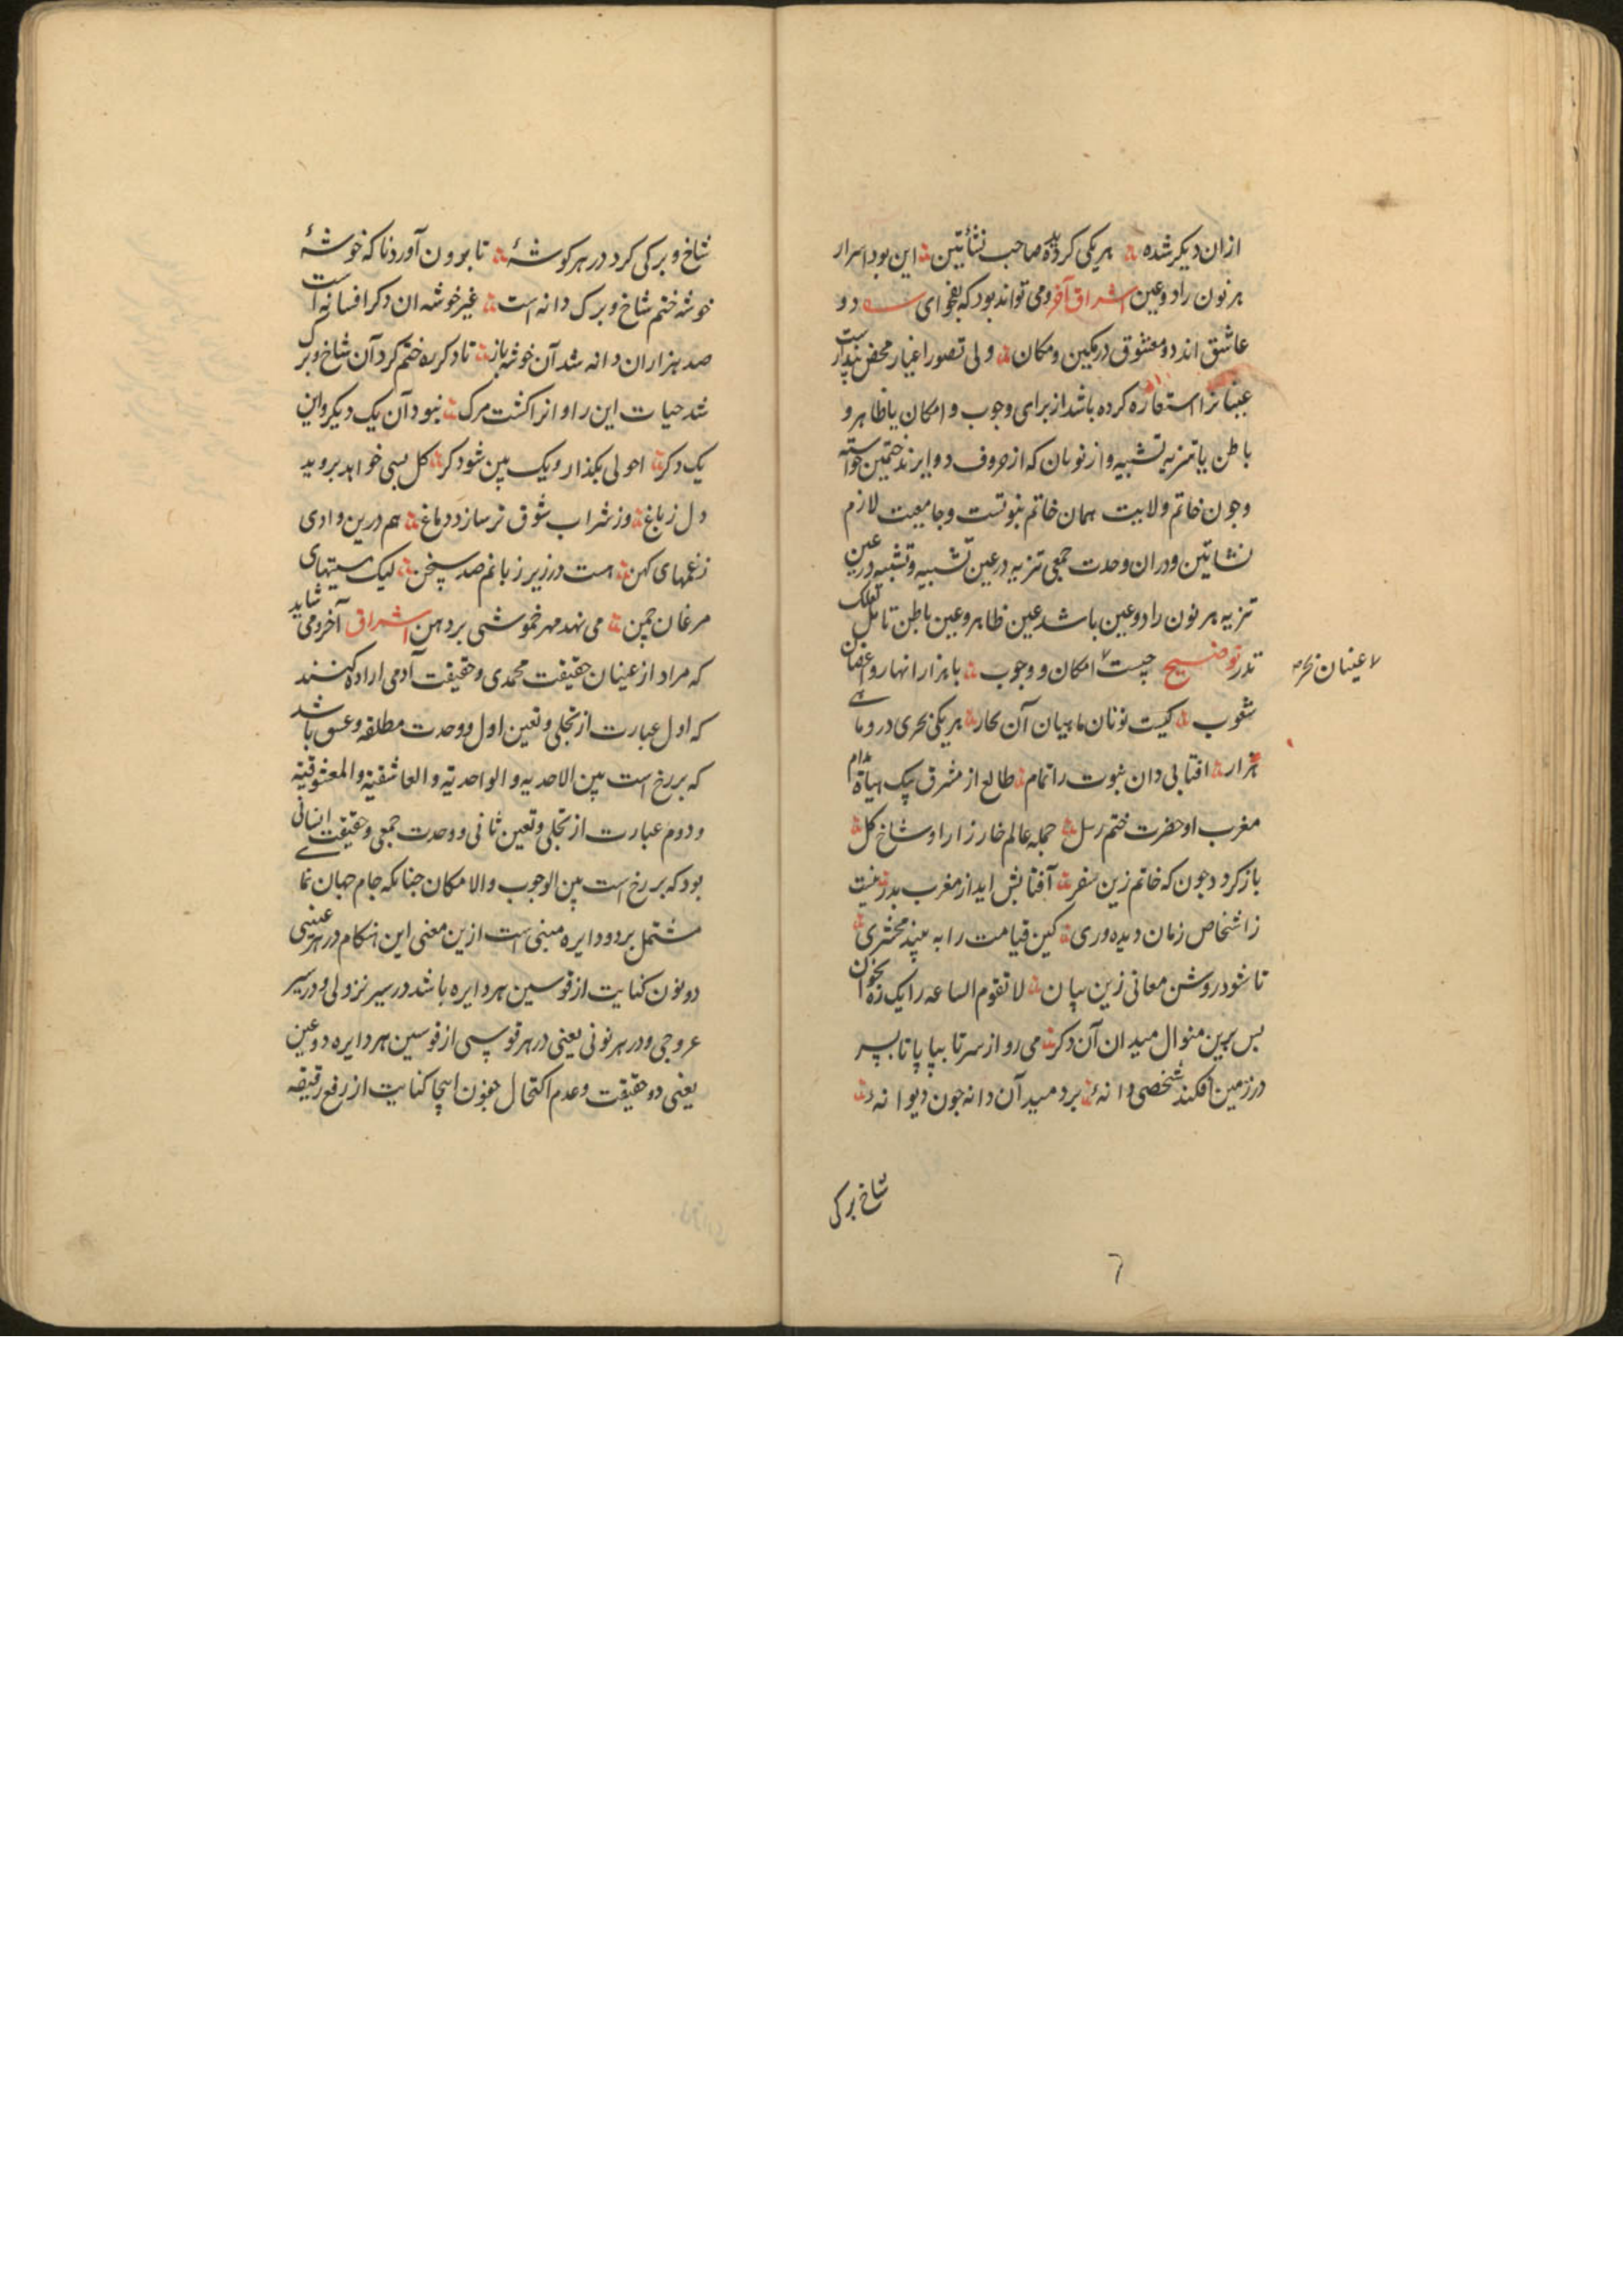 ازان دیکر شده ؞ هریکی کردیده صاحب نشأتین ؞ این بود اسرار
هر نون را دو عین اشراق آخر و می تواند بود که بفحوای دو
عاشق اند دو معشوق در مکین و مکان ؞ ولی تصور اغیار محض پنداراست
عینانرا استعاره کرده باشد از برای وجوب و امکان یا ظاهر و
باطن یا تنزیه تشبیه و از نونان که از حروف دوایرند ختمین خواسته
وجون خاتم ولایت همان خاتم نبوتست وجامعیت لازم
نشاتین ودران وحدت جمعی تنزیه در عین تشبیه وتشبیه در عین
تنزیه هر نون را دو عین باشد عین ظاهر وعین باطن تامل لعلک
تدر توضیح جیست امکان و وجوب ؞ با هزار انهار و اغصان
شعوب ؞ کیست نونان ماهیان آن بحار ؞ هریکی بحری درو ماهی
هزار ؞ افتابی دان نبوت را تمام ؞ طالع از مشرق پیک مدام
مغرب او حضرت ختم رسل ؞ جمله عالم خارزار او شاخ کل
باز کردد جون که خاتم زین سفر ؞ آفتابش اید از مغرب بدر ؞ نیست
ز اشخاص زمان دیده وری ؞ کین قیامت را به بیند محشری
تا شود روشن معانی زین بیان ؞ لا تقوم الساعه را یک ره بخوان
بس برین منوال میدان آن دکر ؞ می رو از سر تا بپا پا تا بسر
در زمین افکند شخصی دانهٔ ؞ بردمید آن دانه جون دیوانهٔ
شاخ برکی
عینان نخ
٦
شاخ و برکی کرد در هر کوشهٔ ؞ تا برون آورد ناکه خوشهٔ
خوشه ختم شاخ و برک دانه است ؞ غیر خوشه ان دکر افسانه است
صد هزاران دانه شد آن خوشه باز ؞ تا دکر ره ختم کرد آن شاخ و برک
شد حیات این را و انرا کشت مرک ؞ نبود آن یک دیکر واین
یک دکر ؞ احولی بکذار ویک بین شو دکر ؞ کل بسی خواهد بروید
دل ز باغ ؞ وز شراب شوق تر سازد دماغ ؞ هم درین وادی
زغمهای کهن ؞ هست در زیر زبانم صد سخن ؞ لیک مستیهای
مرغان چمن ؞ می نهد مهر خموشی بر دهن اشراق آخر و می شاید
که مراد از عینان حقیقت محمدی و حقیقت آدمی اراده کنند
که اول عبارت از تجلی و تعین اول و وحدت مطلقه وعشق باشد
که برزخ است بین الاحدیه و الواحدیة والعاشقیة والمعشوقیة
ودوم عبارت از تجلی و تعین ثانی و وحدت جمعی وحقیقت انسانی
بود که برزخ است بین الوجوب والامکان جنانکه جام جهان نمای
مشتمل بر دو دایره مبنی است ازین معنی این هنکام در هر عینی
دو نون کنایت از قوسین هر دایره باشد در سیر نزولی و در سیر
عروجی و در هر نونی یعنی در هر قوسی از قوسین هر دایره دو عین
یعنی دو حقیقت و عدم اکتحال جفون اینجا کنایت از رفع رقیقه